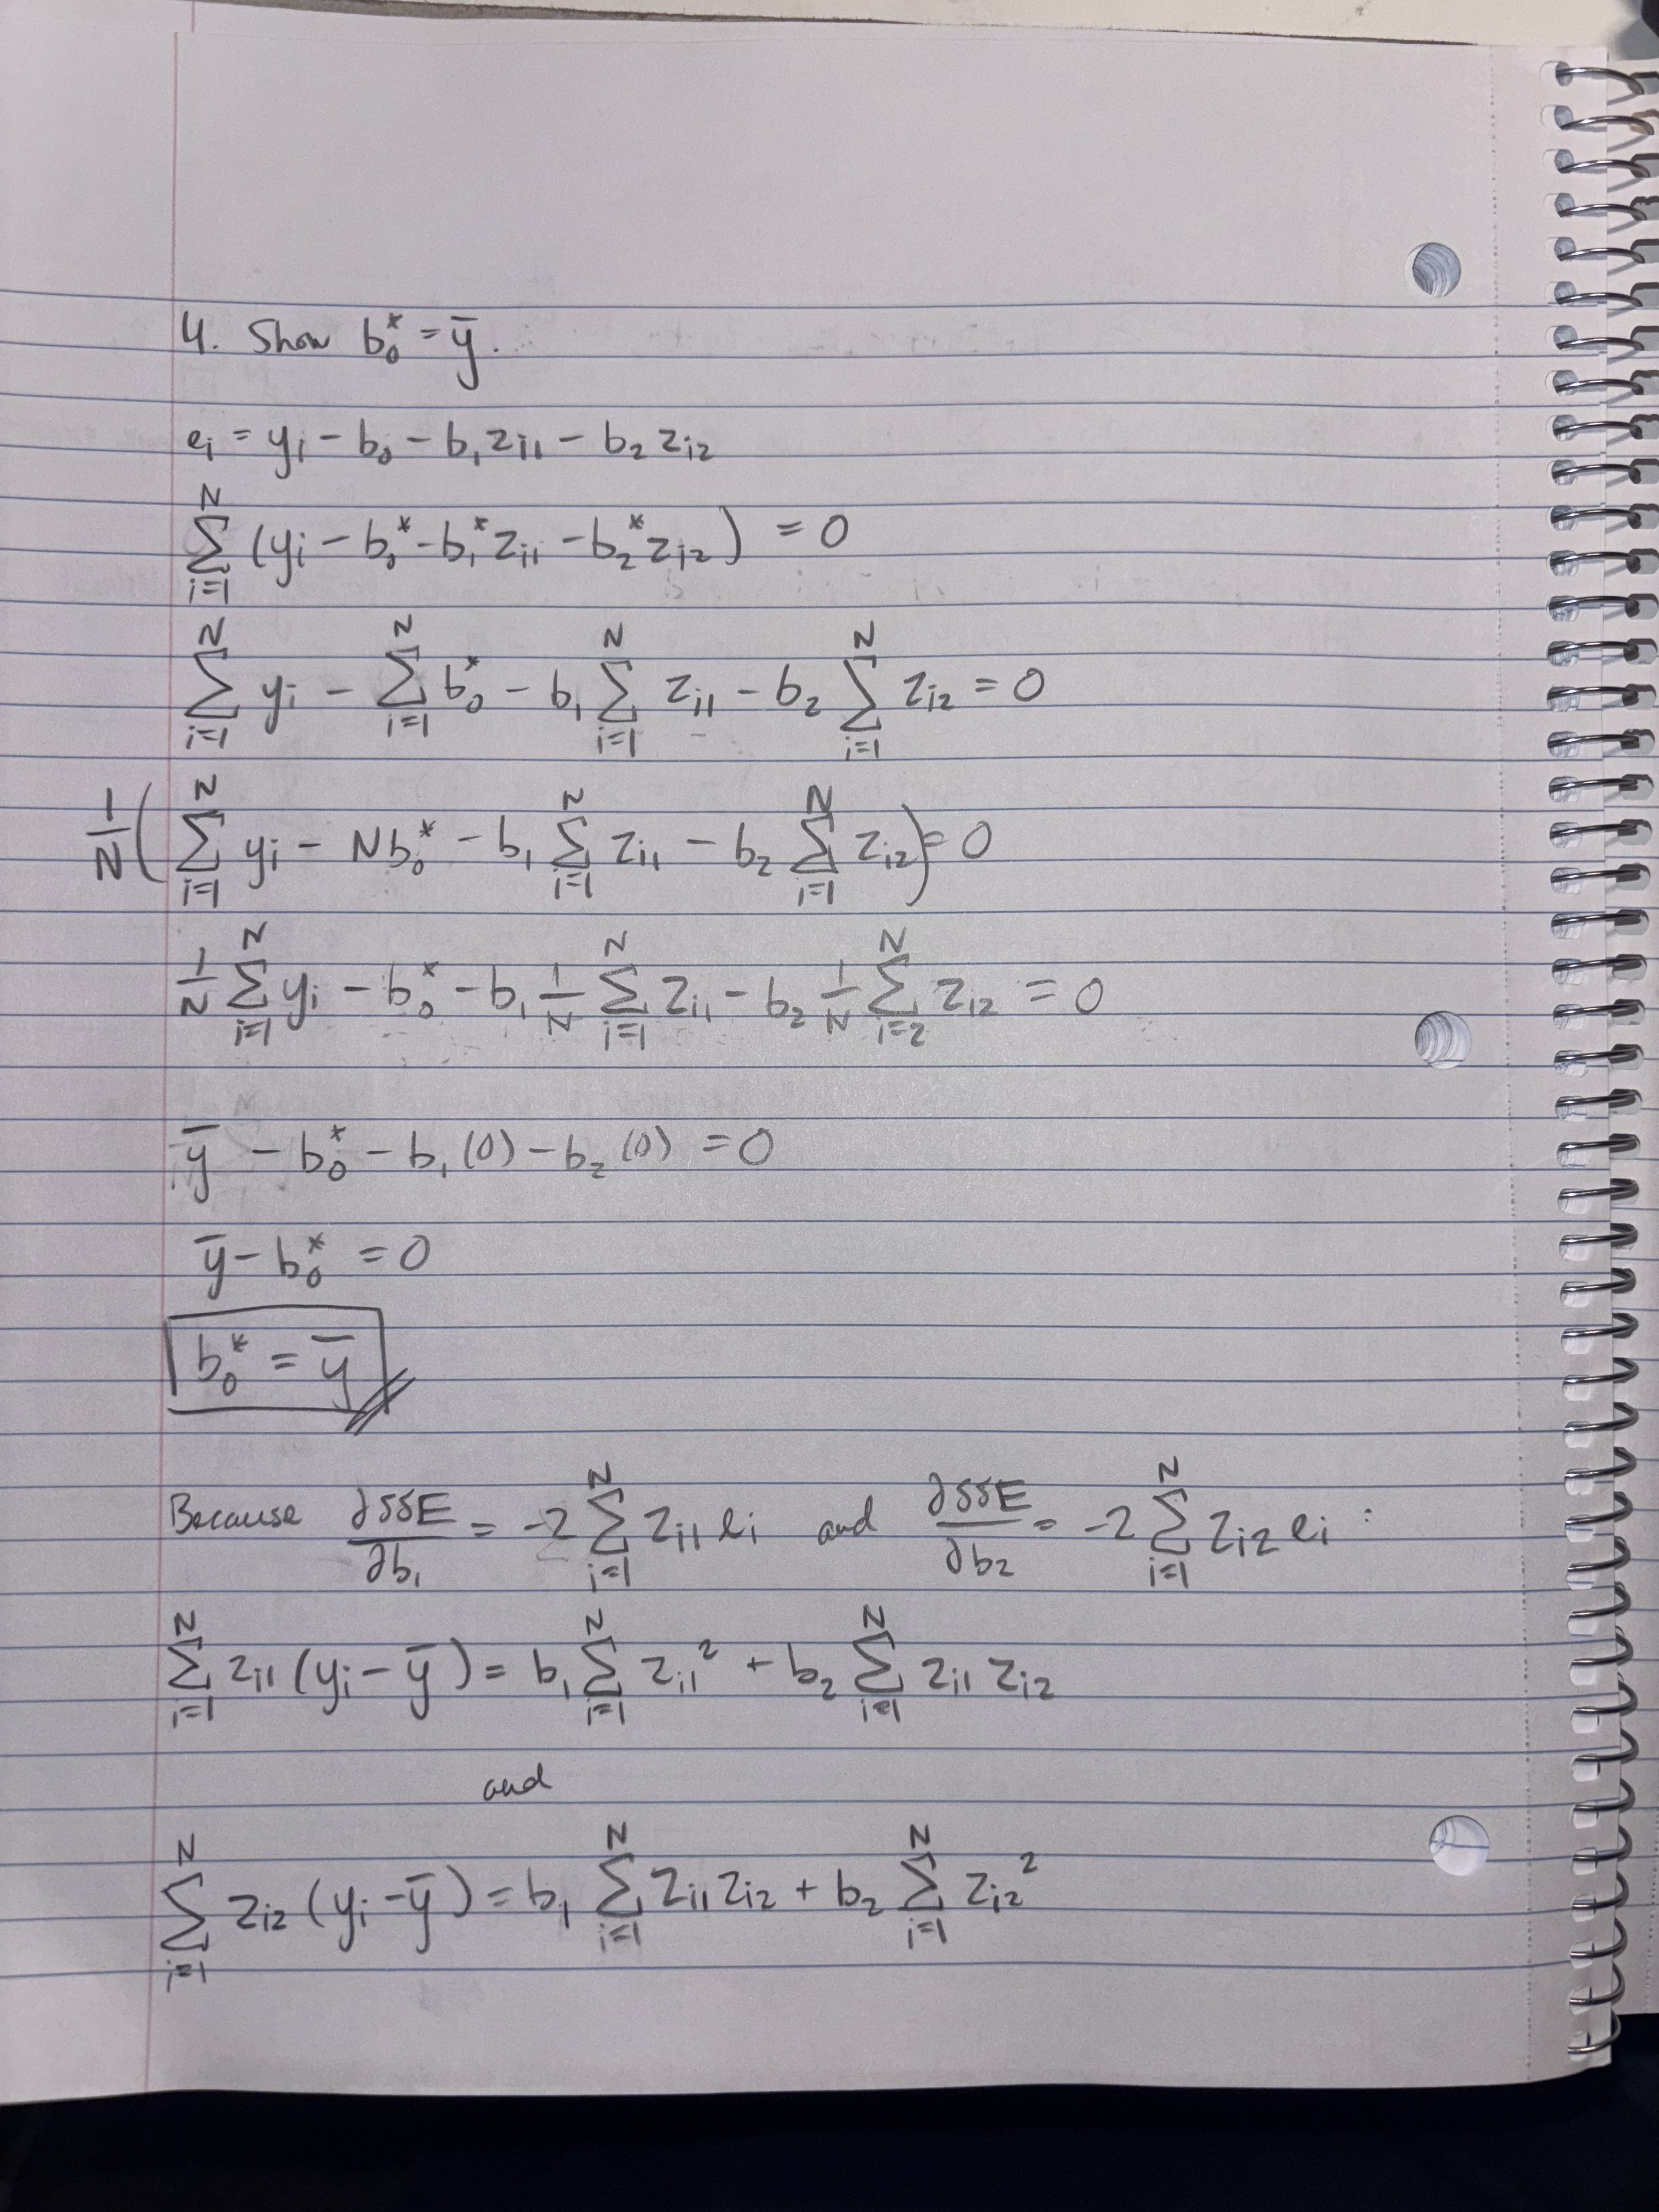 4. Show b₀* = ȳ.
eᵢ = yᵢ − b₀ − b₁ zᵢ₁ − b₂ zᵢ₂
∑ᵢ₌₁ᴺ (yᵢ − b₀* − b₁* zᵢ₁ − b₂* zᵢ₂) = 0
∑ᵢ₌₁ᴺ yᵢ − ∑ᵢ₌₁ᴺ b₀* − b₁ ∑ᵢ₌₁ᴺ zᵢ₁ − b₂ ∑ᵢ₌₁ᴺ zᵢ₂ = 0
1/N (∑ᵢ₌₁ᴺ yᵢ − Nb₀* − b₁ ∑ᵢ₌₁ᴺ zᵢ₁ − b₂ ∑ᵢ₌₁ᴺ zᵢ₂) = 0
1/N ∑ᵢ₌₁ᴺ yᵢ − b₀* − b₁ 1/N ∑ᵢ₌₁ᴺ zᵢ₁ − b₂ 1/N ∑ᵢ₌₂ᴺ zᵢ₂ = 0
ȳ − b₀* − b₁ (0) − b₂ (0) = 0
ȳ − b₀* = 0
b₀* = ȳ
Because ∂SSE/∂b₁ = −2 ∑ᵢ₌₁ᴺ zᵢ₁ eᵢ and ∂SSE/∂b₂ = −2 ∑ᵢ₌₁ᴺ zᵢ₂ eᵢ :
∑ᵢ₌₁ᴺ zᵢ₁ (yᵢ − ȳ) = b₁ ∑ᵢ₌₁ᴺ zᵢ₁² + b₂ ∑ᵢ₌₁ᴺ zᵢ₁ zᵢ₂
and
∑ᵢ₌₁ᴺ zᵢ₂ (yᵢ − ȳ) = b₁ ∑ᵢ₌₁ᴺ zᵢ₁ zᵢ₂ + b₂ ∑ᵢ₌₁ᴺ zᵢ₂²